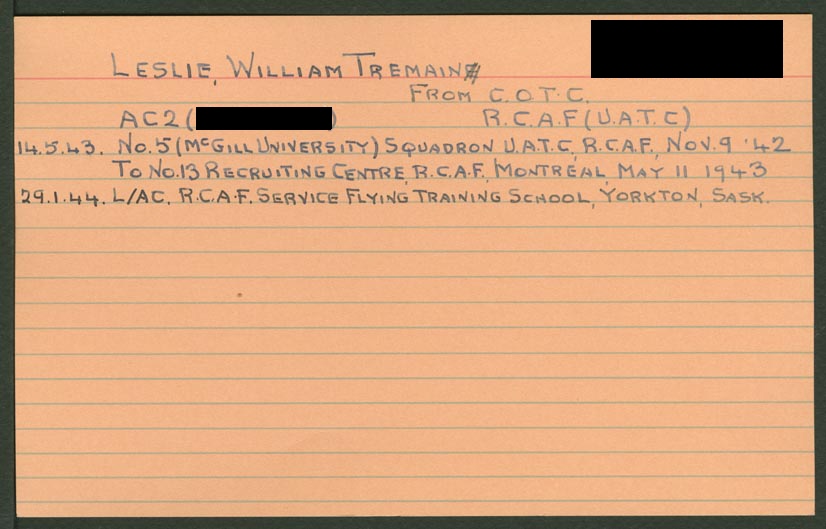 LESLIE, WILLIAM TREMAIN
FROM C.O.T.C.
AC2 ( ) R.C.A.F (U.A.T.C)
14.5.43. No.5 (McGILL UNIVERSITY) SQUADRON U.A.T.C, R.C.A.F, NOV. 9 '42
To No.13 RECRUITING CENTRE, R.C.A.F, MONTRÉAL, MAY 11 1943
29.1.44. L/AC, R.C.A.F. SERVICE FLYING TRAINING SCHOOL, YORKTON, SASK.